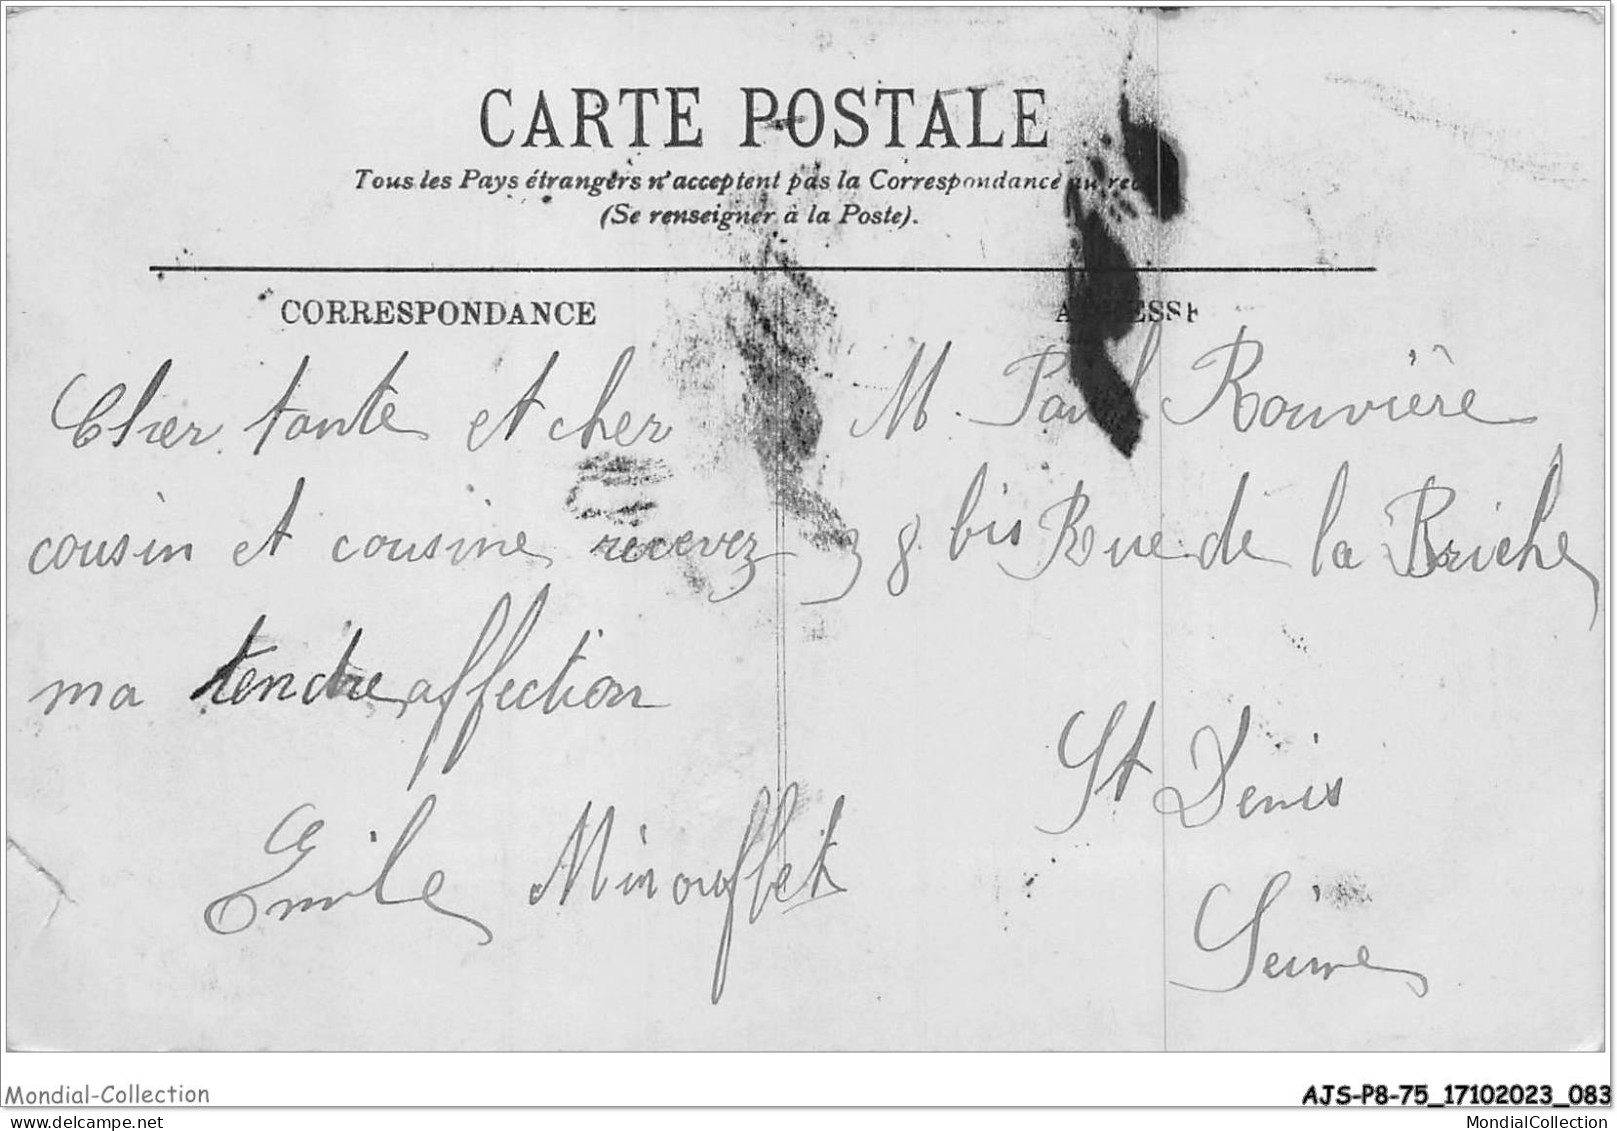 CARTE POSTALE
Tous les Pays étrangers n'acceptent pas la Correspondance au rec
(Se renseigner à la Poste).
CORRESPONDANCE
Cher tante et cher
cousin et cousine recevez
ma tendre affection
Emile Minouflet
ADRESSE
M. Paul Rouvière
38 bis Rue de la Briche
St Denis
Seine
Mondial-Collection
AJS-P8-75_17102023_083
mondial-collection.com
MondialCollection